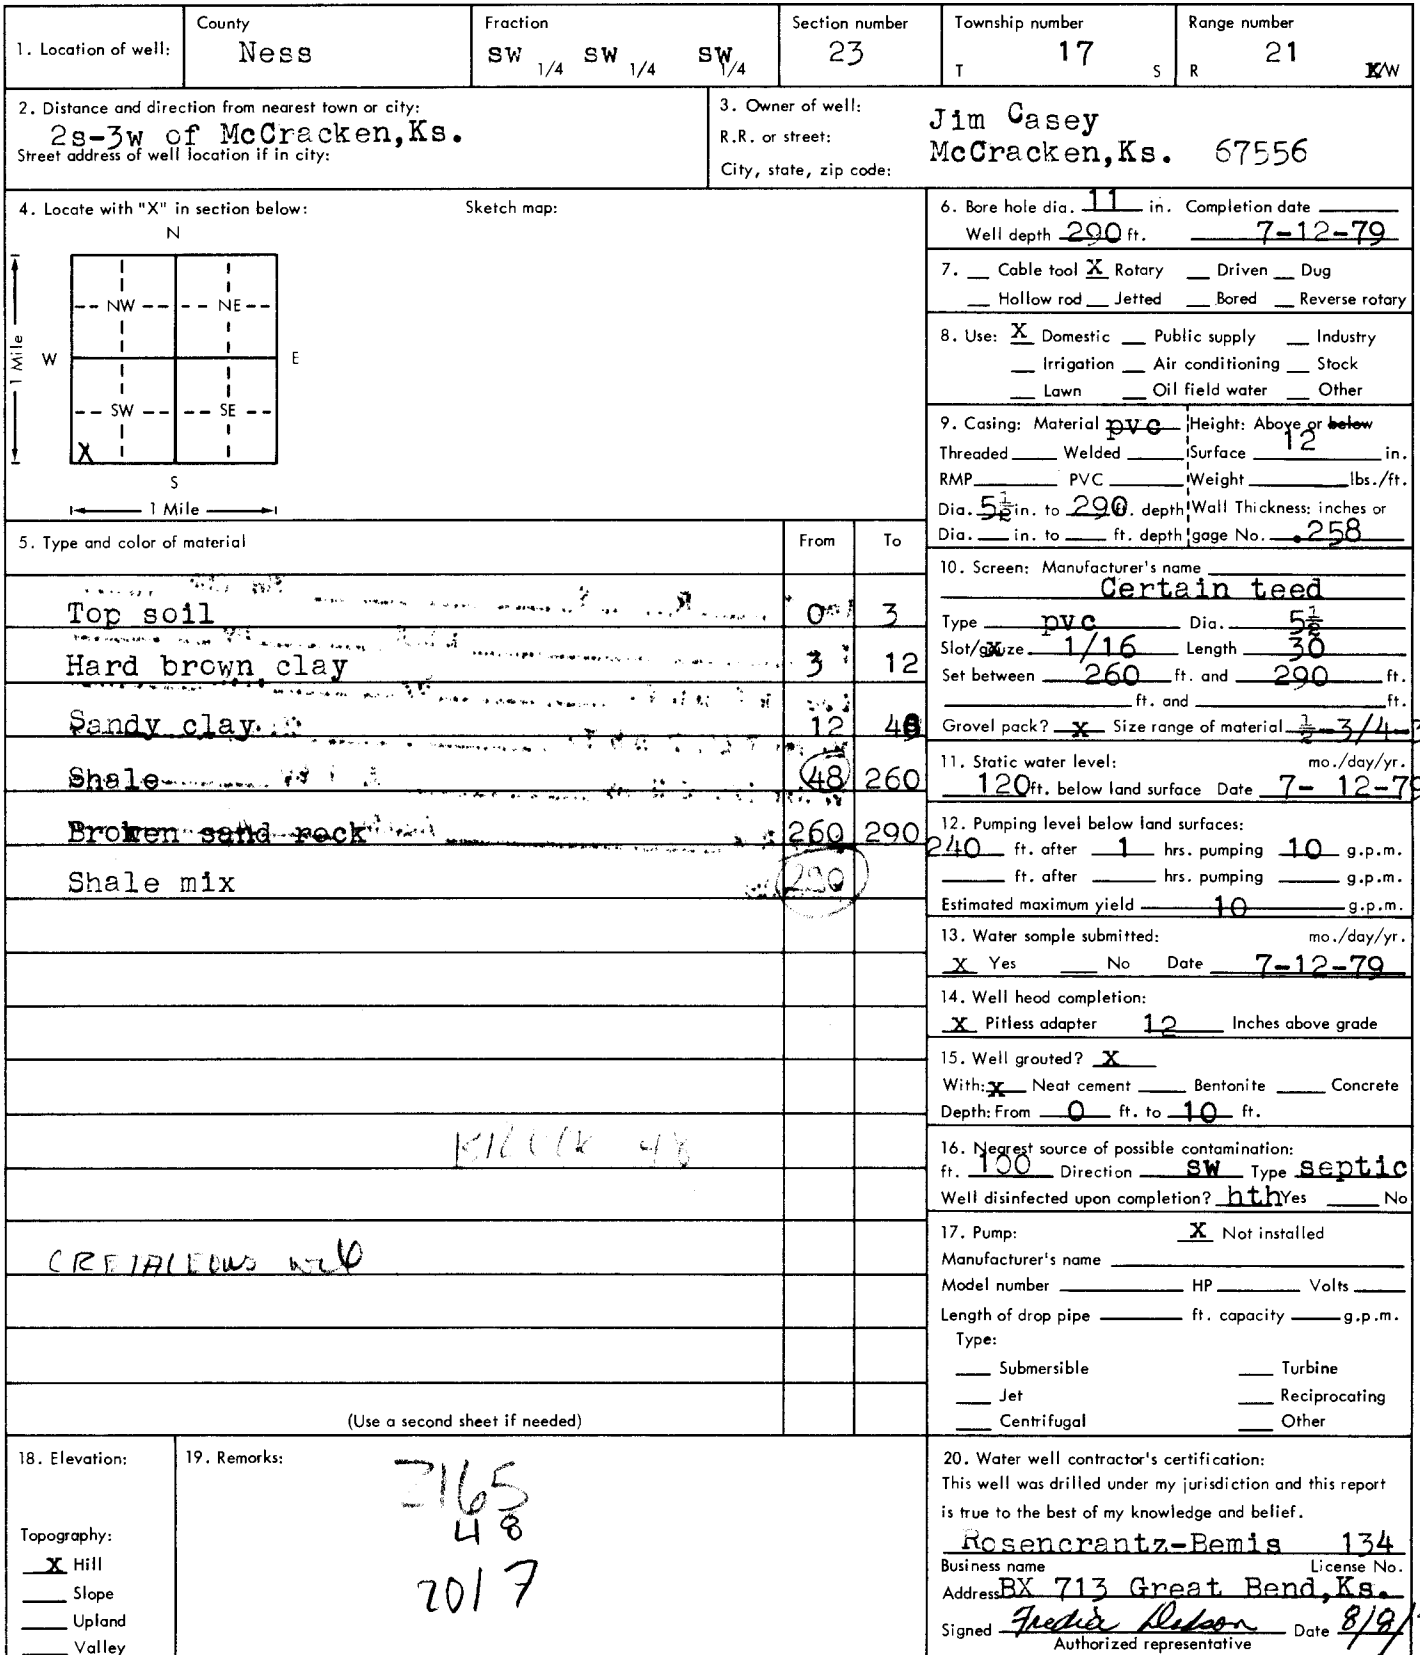 1. Location of well:
County
Ness
Fraction
SW 1/4 SW 1/4 SW 1/4
Section number
23
Township number
T 17 S
Range number
R 21 E/W
2. Distance and direction from nearest town or city:
2s-3w of McCracken,Ks.
Street address of well location if in city:
3. Owner of well:
R.R. or street:
City, state, zip code:
Jim Casey
McCracken,Ks. 67556
4. Locate with "X" in section below:
Sketch map:
N
NW NE
1 Mile
W E
SW SE
X
S
1 Mile
5. Type and color of material From To
Top soil 0 3
Hard brown clay 3 12
Sandy clay 12 48
Shale 48 260
Broken sand rock 260 290
Shale mix 290
48
CRETACEOUS
(Use a second sheet if needed)
6. Bore hole dia. 11 in. Completion date
Well depth 290 ft. 7-12-79
7. __ Cable tool X Rotary __ Driven __ Dug
__ Hollow rod __ Jetted __ Bored __ Reverse rotary
8. Use: X Domestic __ Public supply __ Industry
__ Irrigation __ Air conditioning __ Stock
__ Lawn __ Oil field water __ Other
9. Casing: Material pvc Height: Above or below
Threaded __ Welded __ Surface 12 in.
RMP __ PVC __ Weight __ lbs./ft.
Dia. 5½ in. to 290 ft. depth Wall Thickness: inches or
Dia. __ in. to __ ft. depth gage No. .258
10. Screen: Manufacturer's name
Certain teed
Type pvc Dia. 5½
Slot/gauze 1/16 Length 30
Set between 260 ft. and 290 ft.
__ ft. and __ ft.
Gravel pack? X Size range of material ½-3/4-3
11. Static water level: mo./day/yr.
120 ft. below land surface Date 7- 12-79
12. Pumping level below land surfaces:
240 ft. after 1 hrs. pumping 10 g.p.m.
__ ft. after __ hrs. pumping __ g.p.m.
Estimated maximum yield 10 g.p.m.
13. Water sample submitted: mo./day/yr.
X Yes __ No Date 7-12-79
14. Well head completion:
X Pitless adapter 12 Inches above grade
15. Well grouted? X
With: X Neat cement __ Bentonite __ Concrete
Depth: From 0 ft. to 10 ft.
16. Nearest source of possible contamination:
ft. 100 Direction SW Type septic
Well disinfected upon completion? hth Yes __ No
17. Pump: X Not installed
Manufacturer's name
Model number __ HP __ Volts __
Length of drop pipe __ ft. capacity __ g.p.m.
Type:
__ Submersible __ Turbine
__ Jet __ Reciprocating
__ Centrifugal __ Other
18. Elevation:
Topography:
X Hill
__ Slope
__ Upland
__ Valley
19. Remarks:
2165
48
2017
20. Water well contractor's certification:
This well was drilled under my jurisdiction and this report
is true to the best of my knowledge and belief.
Rosencrantz-Bemis 134
Business name License No.
Address BX 713 Great Bend,Ks.
Signed Fredia Dodson Date 8/8/
Authorized representative